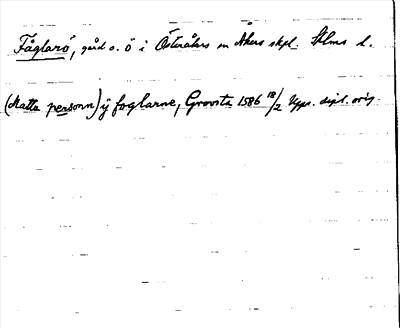 Fåglarö, gård o. ö i Österåkers sn Åkers skpl. Sthms l.
(Matts personn) ÿ foglarne, Growsta 1586 18/2 Upps. dipl. orig.